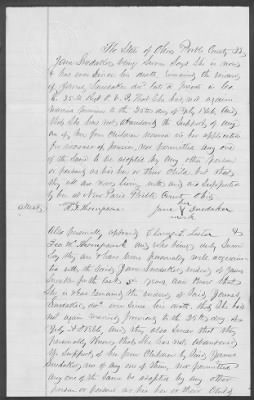 The State of Ohio Preble County SS
Jane Snedaker being Sworn Says She is now
& has ever since his death remained the widow
of James Snedaker dec'd late a private in Co
E. 35th Regt O. V. I. that She has not again
married previous to the 25th day of July 1866, and
that She has not abandoned the Support of any
one of her four children named in her application
for increase of pension, nor permitted any one
of the Same to be adopted by any other person
or persons as his her or their child but that
they all are now living with and are Supported
by her at New Paris Preble County Ohio
attest her
H. F. Thompson Jane X Snedaker
mark
Also personally appeared Ebenezer &
Geo. W. Thompson and who being duly Sworn
Say they are & have been personally well acquain
ted with the Said Jane Snedaker widow of James
Snedaker for the last years and know that
She is and has remained the widow of Said James
Snedaker, dec'd ever since his death, that She had
not again married previous to the 25th day of
July A D 1866, and they also Swear that they
personally know that She has not abandoned
the Support of her four Children by Said James
Snedaker or of any one of them, nor permitted
any one of the Same to be adopted by any other
person or persons as his her or their Child